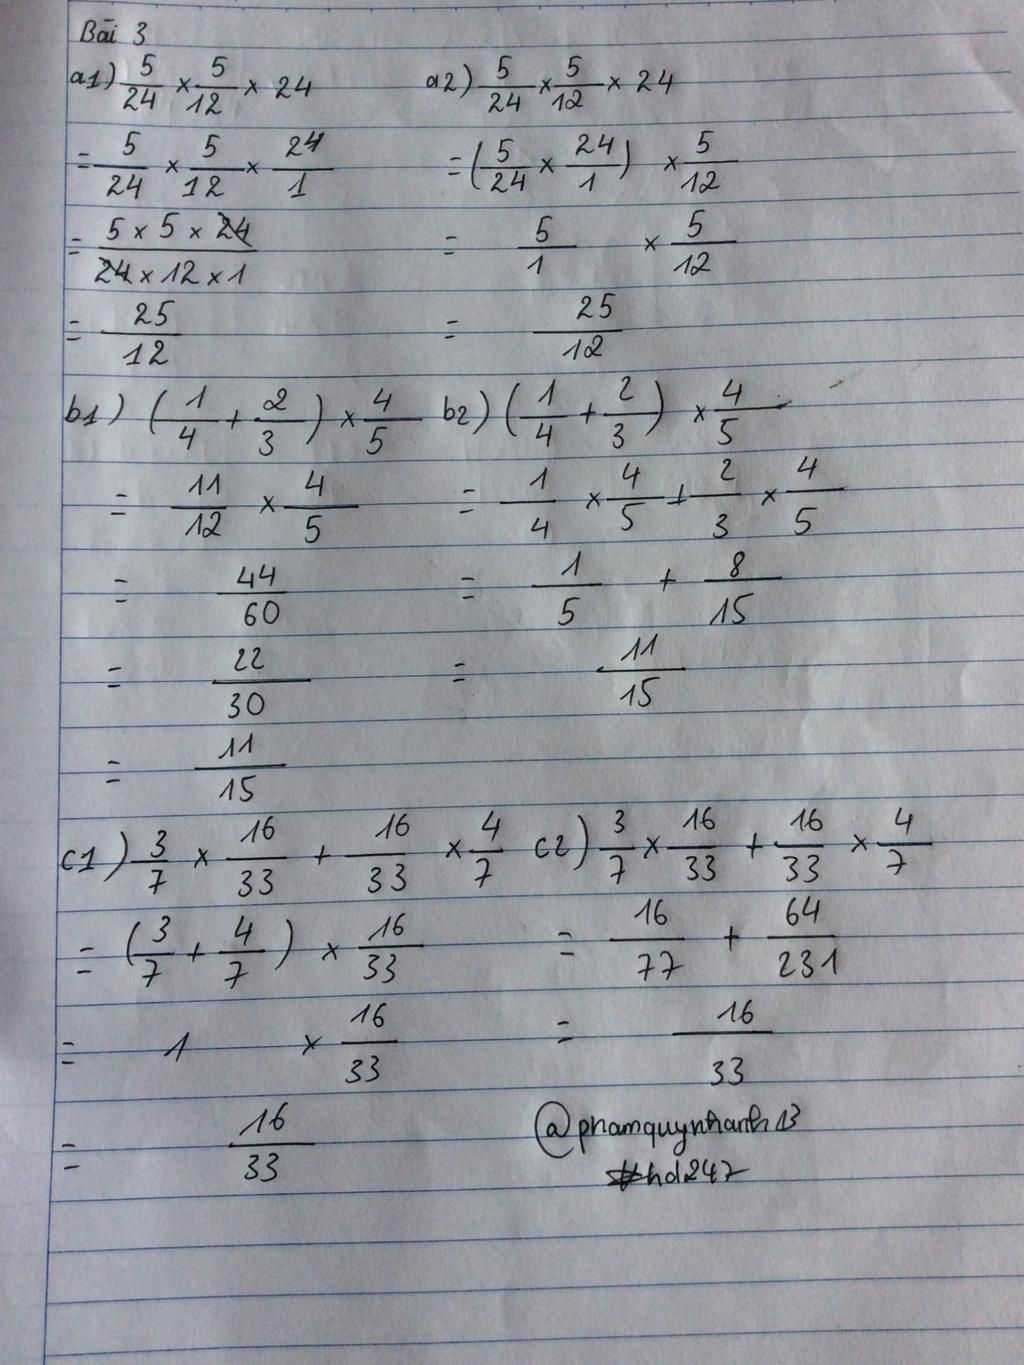 Bài 3
a1) 5/24 × 5/12 × 24
= 5/24 × 5/12 × 24/1
= (5 × 5 × 24)/(24 × 12 × 1)
= 25/12
a2) 5/24 × 5/12 × 24
= (5/24 × 24/1) × 5/12
= 5/1 × 5/12
= 25/12
b1) (1/4 + 2/3) × 4/5
= 11/12 × 4/5
= 44/60
= 22/30
= 11/15
b2) (1/4 + 2/3) × 4/5
= 1/4 × 4/5 + 2/3 × 4/5
= 1/5 + 8/15
= 11/15
c1) 3/7 × 16/33 + 16/33 × 4/7
= (3/7 + 4/7) × 16/33
= 1 × 16/33
= 16/33
c2) 3/7 × 16/33 + 16/33 × 4/7
= 16/77 + 64/231
= 16/33
@phamquynhanh13
#hd247